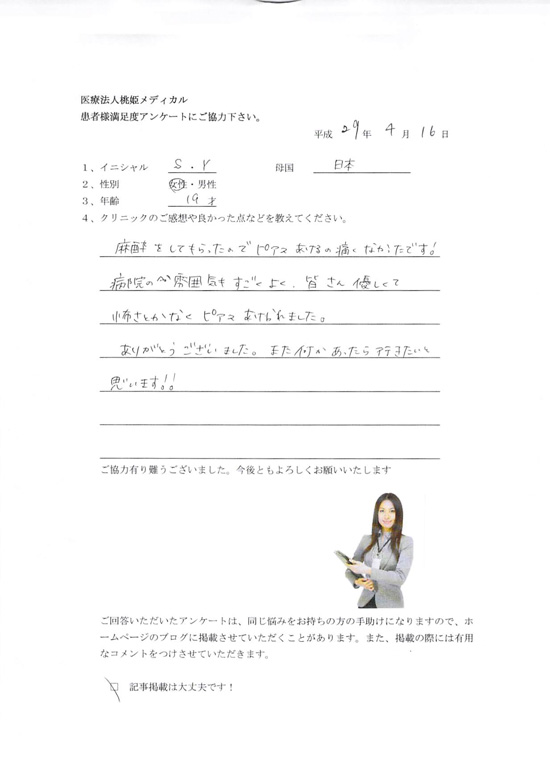 医療法人桃姫メディカル
患者様満足度アンケートにご協力下さい。
平成 29 年 4 月 16 日
1、イニシャル S.Y 母国 日本
2、性別 女性・男性
3、年齢 19 才
4、クリニックのご感想や良かった点などを教えてください。
麻酔をしてもらったのでピアスあけるの痛くなかったです!
病院の雰囲気もすごくよく、皆さん優しくて
怖さとかなくピアスあけられました。
ありがとうございました。また何かあったら来きたいと
思います!!
ご協力有り難うございました。今後ともよろしくお願いいたします
ご回答いただいたアンケートは、同じ悩みをお持ちの方の手助けになりますので、ホ
ームページのブログに掲載させていただくことがあります。また、掲載の際には有用
なコメントをつけさせていただきます。
□ 記事掲載は大丈夫です!